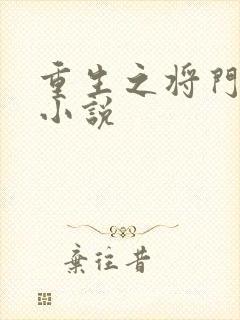 重生之将門
小説
棄往昔